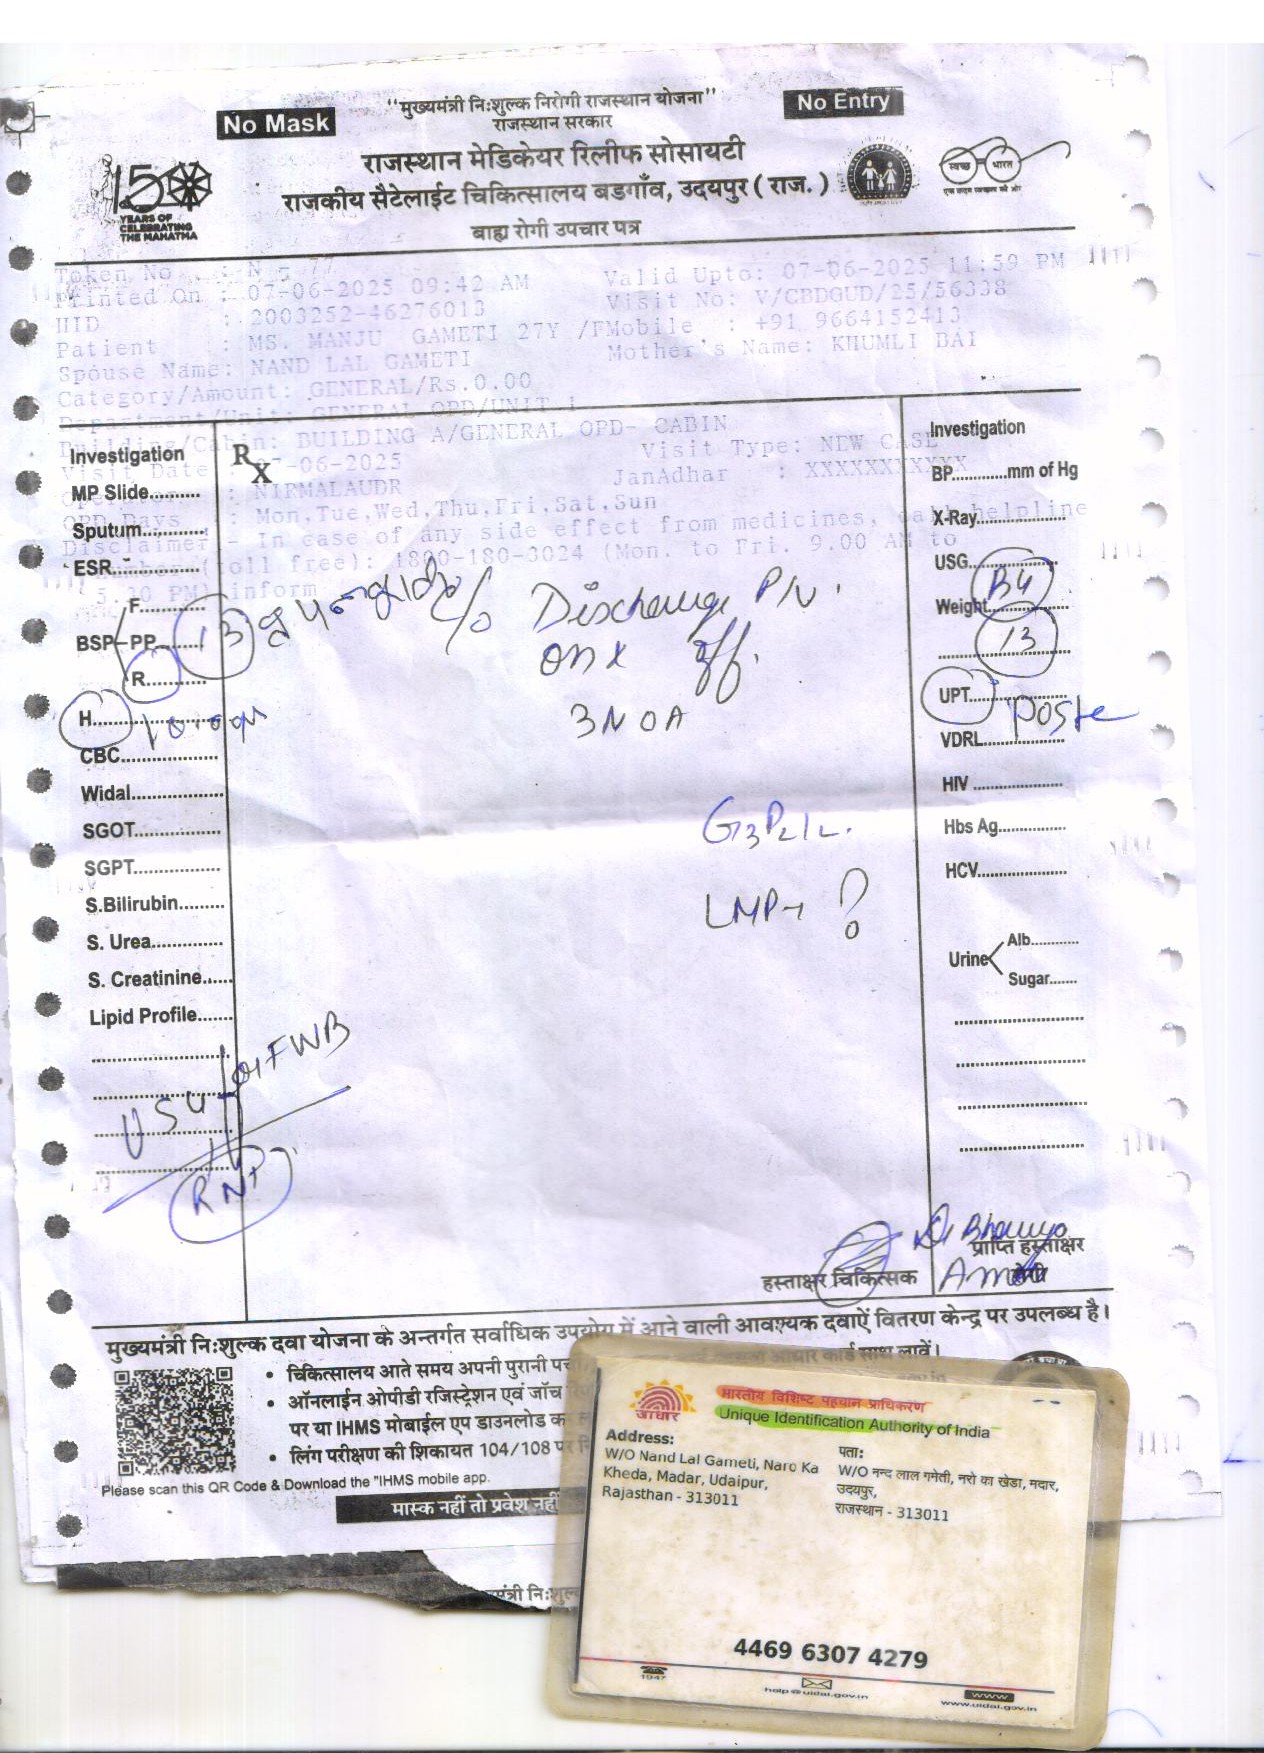 "मुख्यमंत्री निःशुल्क निरोगी राजस्थान योजना"
No Mask
No Entry
राजस्थान सरकार
राजस्थान मेडिकेयर रिलीफ सोसायटी
राजकीय सैटेलाईट चिकित्सालय बडगाँव, उदयपुर ( राज. )
150
YEARS OF
CELEBRATING
THE MAHATMA
स्वच्छ भारत
एक कदम स्वच्छता की ओर
बाह्य रोगी उपचार पत्र
Token No : N - 77
Printed On : 07-06-2025 09:42 AM Valid Upto: 07-06-2025 11:59 PM
HID : 2003252-46276013 Visit No: V/CBDGUD/25/56338
Patient : MS. MANJU GAMETI 27Y /F Mobile : +91 9664152413
Spouse Name: NAND LAL GAMETI Mother's Name: KHUMLI BAI
Category/Amount: GENERAL/Rs.0.00
Department/Unit: GENERAL OPD/UNIT 1
Building/Cabin: BUILDING A/GENERAL OPD- CABIN
Visit Date : 07-06-2025 Visit Type: NEW CASE
Operator : NIRMALAUDR JanAdhar : XXXXXXXXXXX
OPD Days : Mon,Tue,Wed,Thu,Fri,Sat,Sun
Disclaimer:- In case of any side effect from medicines, call helpline
number (toll free): 1800-180-3024 (Mon. to Fri. 9.00 AM to
5.30 PM) inform
Investigation
MP Slide.........
Sputum............
ESR................
BSP
F............
PP........
R............
H......................
CBC...................
Widal..................
SGOT.................
SGPT.................
S.Bilirubin.........
S. Urea.............
S. Creatinine......
Lipid Profile.......
Rx
13
c/o Discharge P/V.
on x off.
3NOA
G3P2L2.
LMP→ ?
USG for FWB
RNT
Investigation
BP............mm of Hg
X-Ray....................
USG....................
Weight..................
B4
13
UPT.....................
Poste
VDRL..................
HIV ....................
Hbs Ag...............
HCV....................
Urine
Alb...........
Sugar.......
Dr Bhavya
प्राप्ति हस्ताक्षर
हस्ताक्षर चिकित्सक
मुख्यमंत्री निःशुल्क दवा योजना के अन्तर्गत सर्वाधिक उपयोग में आने वाली आवश्यक दवाऐं वितरण केन्द्र पर उपलब्ध है।
• चिकित्सालय आते समय अपनी पुरानी पर्ची
आधार कार्ड साथ लावें।
• ऑनलाईन ओपीडी रजिस्ट्रेशन एवं जाँच
पर या IHMS मोबाईल एप डाउनलोड
• लिंग परीक्षण की शिकायत 104/108 पर
Please scan this QR Code & Download the "IHMS mobile app.
मास्क नहीं तो प्रवेश नहीं
आधार
भारतीय विशिष्ट पहचान प्राधिकरण
Unique Identification Authority of India
Address:
W/O Nand Lal Gameti, Naro Ka
Kheda, Madar, Udaipur,
Rajasthan - 313011
पता:
W/O नन्द लाल गमेती, नरो का खेडा, मदार,
उदयपुर,
राजस्थान - 313011
4469 6307 4279
1947
help@uidai.gov.in
www
www.uidai.gov.in